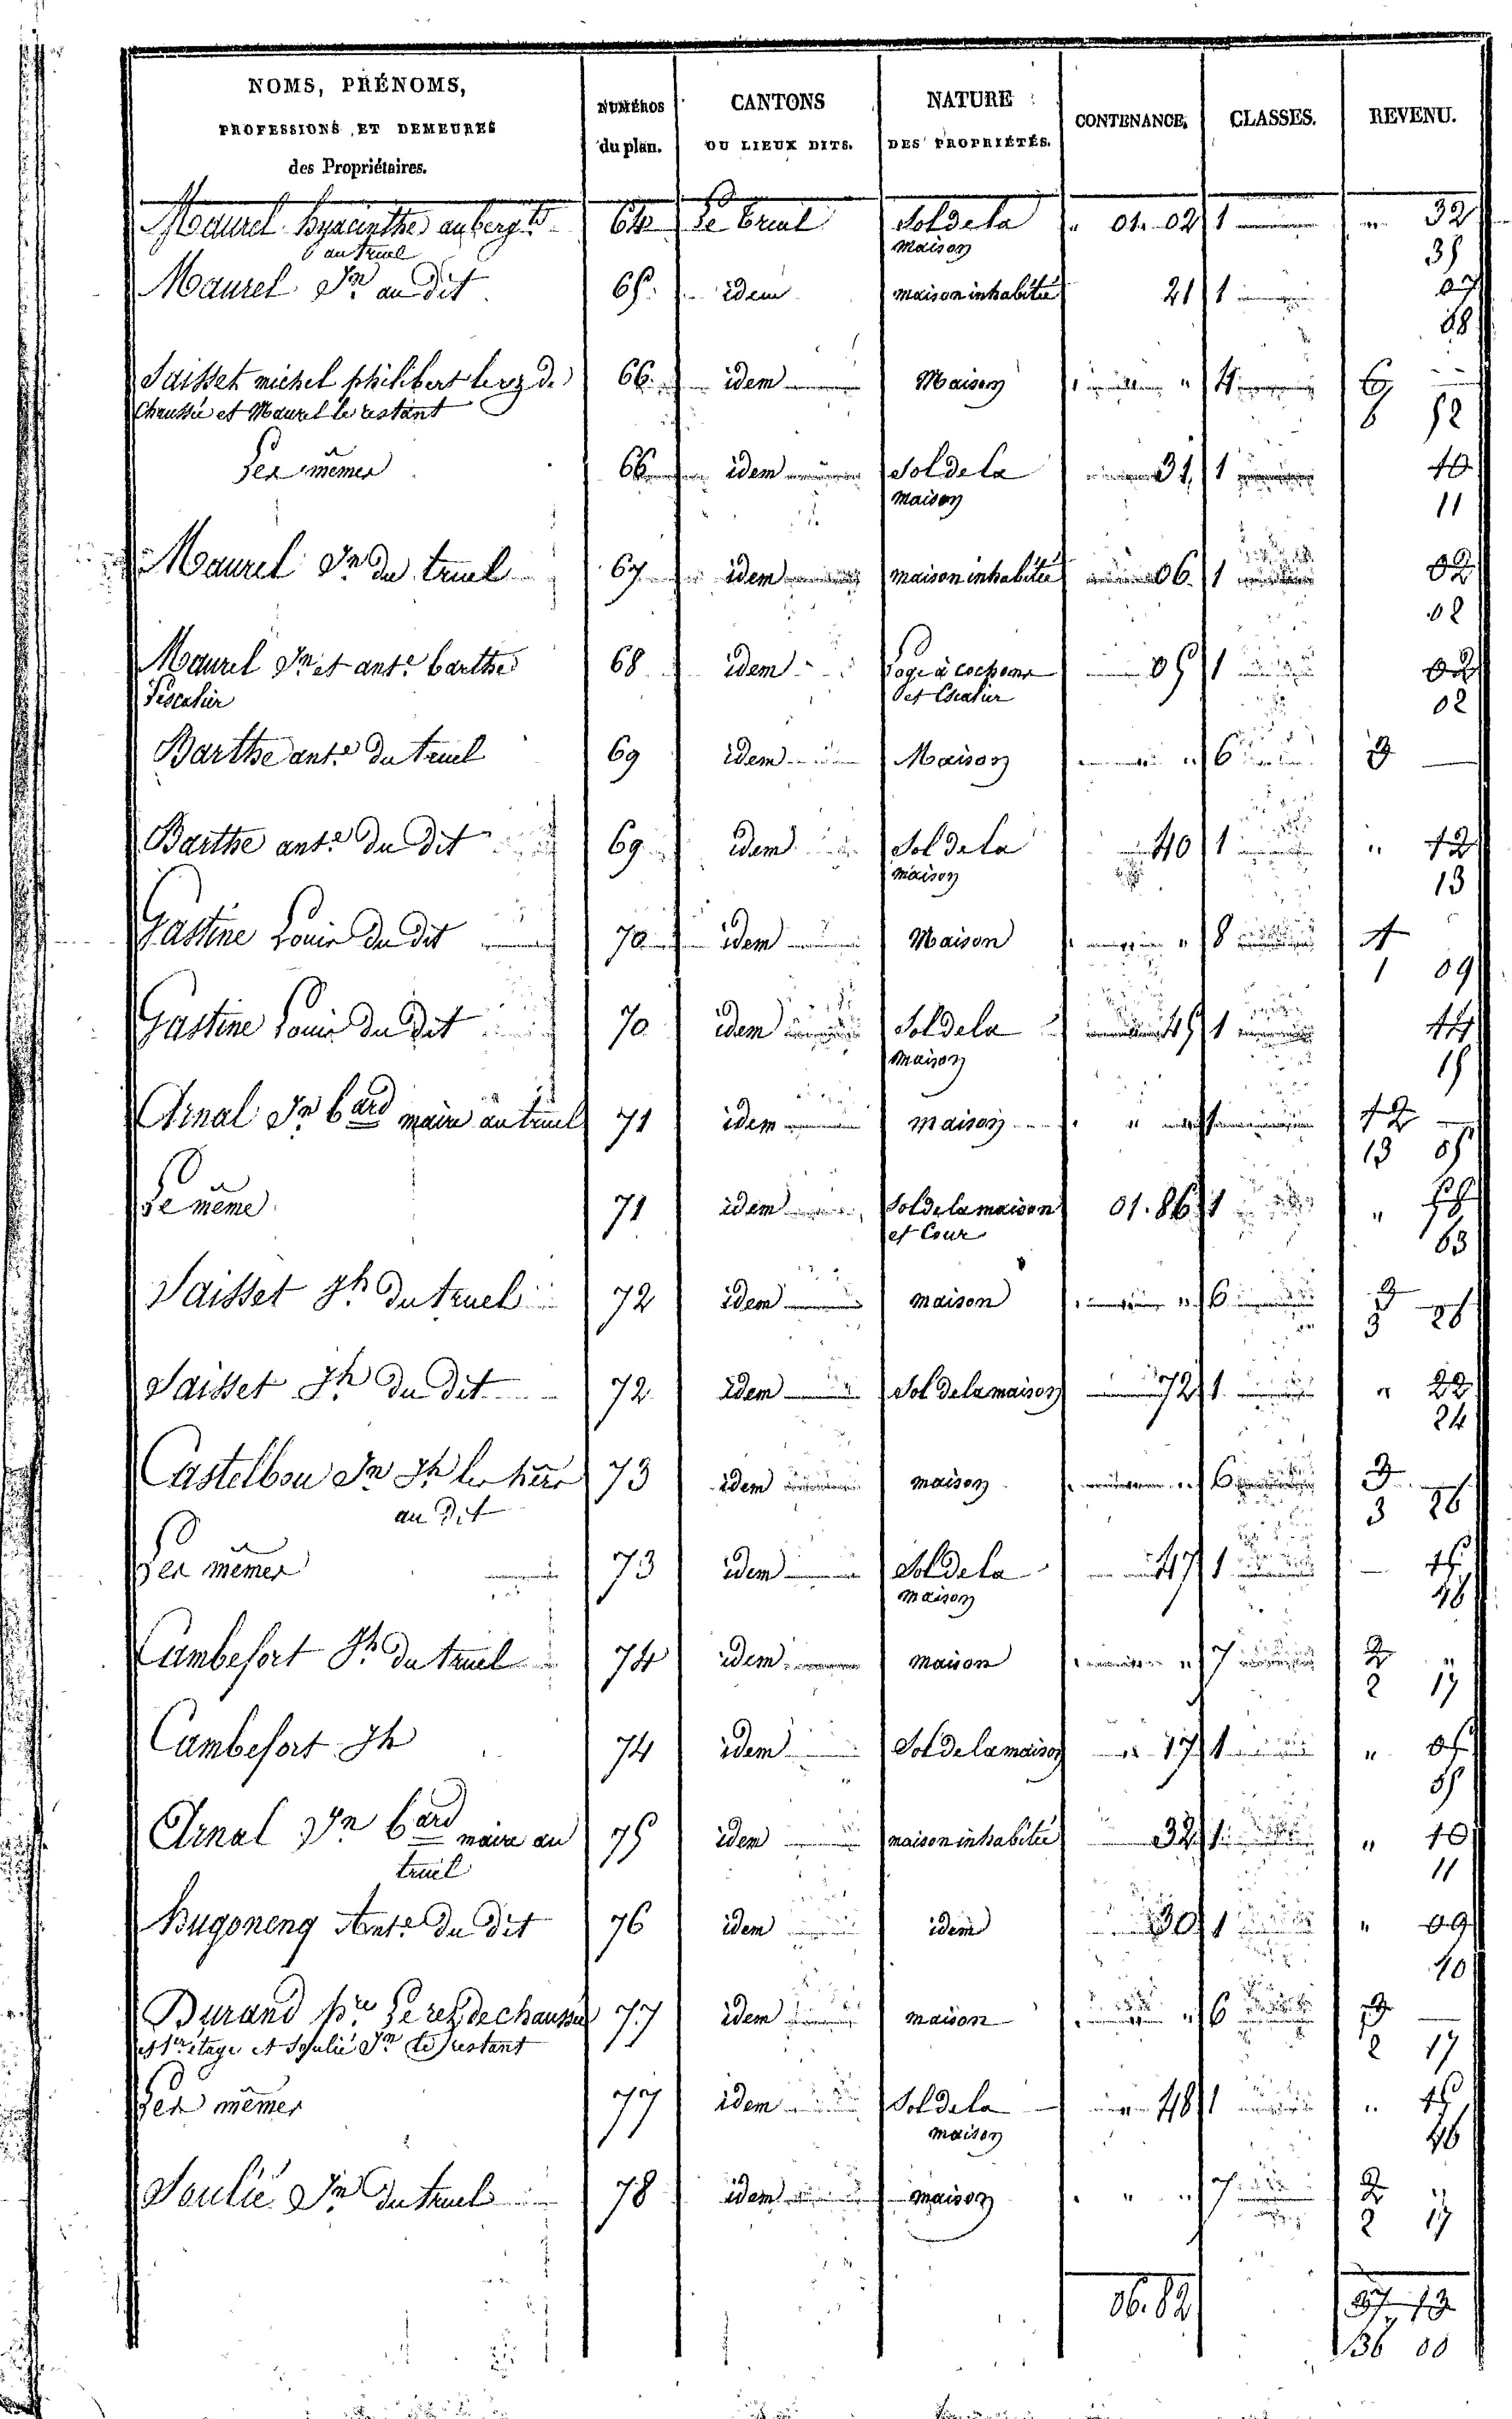 NOMS, PRÉNOMS,
PROFESSIONS ET DEMEURES
des Propriétaires.
NUMÉROS
du plan.
CANTONS
OU LIEUX DITS.
NATURE
DES PROPRIÉTÉS.
CONTENANCE.
CLASSES.
REVENU.
Maurel hyacinthe auberg.te 64 Le truel Sol de la " 01. 02 1 " 32
au truel maison 35
Maurel Jn au dit 65. idem maison inhabitée 21 1 07
08
Saisset michel philibert le rez de 66. idem Maison " 4 6
Chaussée et Maurel le restant 6 52
Les mêmes 66 idem Sol de la 31 1 10
maison 11
Maurel Jn du truel 67 idem maison inhabitée 06. 1 02
02
Maurel Jn et ant.e barthe 68 idem Loge à cochons 05 1 02
l'escalier et Escalier 02
Barthe ant.e du truel 69 idem Maison " 6 3
Barthe ant.e du dit 69 idem Sol de la 40 1 " 12
maison 13
Gastine Louis du dit 70 idem Maison " 8 1
1 09
Gastine Louis du dit 70 idem Sol de la 45 1 14
maison 15
Arnal Jn bard maire au truel 71 idem maison " 12
13 05
Le même 71 idem Sol de la maison 01. 86 1 " 58
et Cour 63
Saisset Jh du truel 72 idem maison " 6 3
3 26
Saisset Jh du dit 72 idem Sol de la maison 72 1 " 22
24
Castelbou Jn Jh les hérs 73 idem maison " 6 3
au dit 3 26
Les mêmes 73 idem Sol de la 47 1 15
maison 16
Cambefort Jh du truel 74 idem maison " 7 2 "
2 17
Cambefort Jh 74 idem Sol de la maison " 17 1 " 05
05
Arnal Jn bard maire au 75 idem maison inhabitée 32 1 " 10
truel 11
hugoneng Ant.e du dit 76 idem idem 30 1 " 09
10
Durand pre Le rez de chaussée 77 idem maison " 6
et 1er étage et Soulié Jn le restant 2 17
Les mêmes 77 idem Sol de la 48 1 " 15
maison 16
Soulié Jn du truel 78 idem maison " " 7 2 "
2 17
06. 82 37 13
36 00